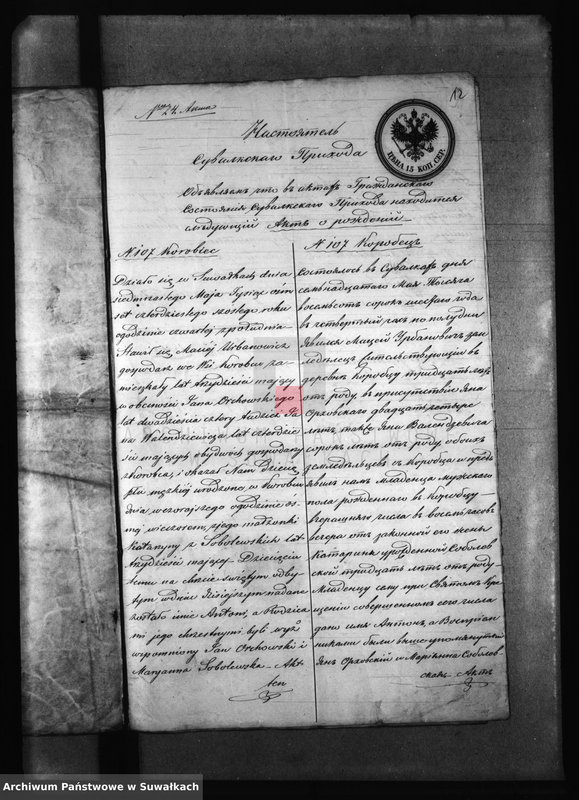 12
Nro 24 Anexa
ЦѢНА 15 КОП. СЕР.
Настоятель
Сувалкскаго Прихода
Объявляем что въ актахъ Гражданскаго
Состоянія Сувалкскаго Прихода находится
слѣдующій Актъ о рожденій
N 107 Korobiec
Działo się w Suwałkach dnia
siedmnastego Maja Tysiąc ośm
set czterdziestego szostego roku
o godzinie czwartej z południa
Stawił się Maciéj Urbanowicz
gospodarz we Wsi Korobcu za-
mieszkały lat trzydzieści mający
w obecności Jana Orchowskiego
lat dwadzieścia cztery tudzież Ja
na Walendziewicza lat czterdzie
ści mających obydwóch gospodarzy
z Korobca, i okazał Nam Dziecię
płci męzkiej urodzone w Korobcu
dnia wczorajszego o godzinie ós-
mej wieczorem, z jego małżonki
Katarzyny z Sobolewskich lat
trzydzieści mającej Dziecięciu
temu na chrzcie świętym odby-
tym w dniu dzisiejszym nadane
zostało imie Antoni, a Rodzica
mi jego chrzestnymi byli wyż
wspomniony Jan Orchowski i
Maryanna Sobolewska - Akt
ten
N 107 Коробецъ
Состоялось въ Сувалкахъ дня
семьнадцатаго Мая Тысяча
восемьсотъ сорокъ шестаго года
въ четвертый часъ по полудни
явился Мацѣй Урбановичъ зем
ледѣлецъ жительствующій въ
деревнѣ Коробцу тридцать лѣтъ
отъ роду, въ присутствіи Яна
Орховскаго двадцать четыре
лѣтъ также Яна Валендзевича
сорокъ лѣтъ отъ роду обоихъ
земледѣльцевъ съ Коробца и предъ
явилъ намъ Младенца мужескаго
пола рожденнаго въ Коробцу
вчерашняго числа въ восемь часовъ
вечера отъ законной его жены
Катарины урожденной Соболев
ской тридцать лѣтъ отъ роду
Младенцу сему при Святомъ Кре
щеніи совершенномъ сего числа
дано имя Антонъ, а Воспріем
никами были выше упомянутый
Янъ Орховскій и Маріянна Соболев
ская Актъ
Archiwum Państwowe w Suwałkach